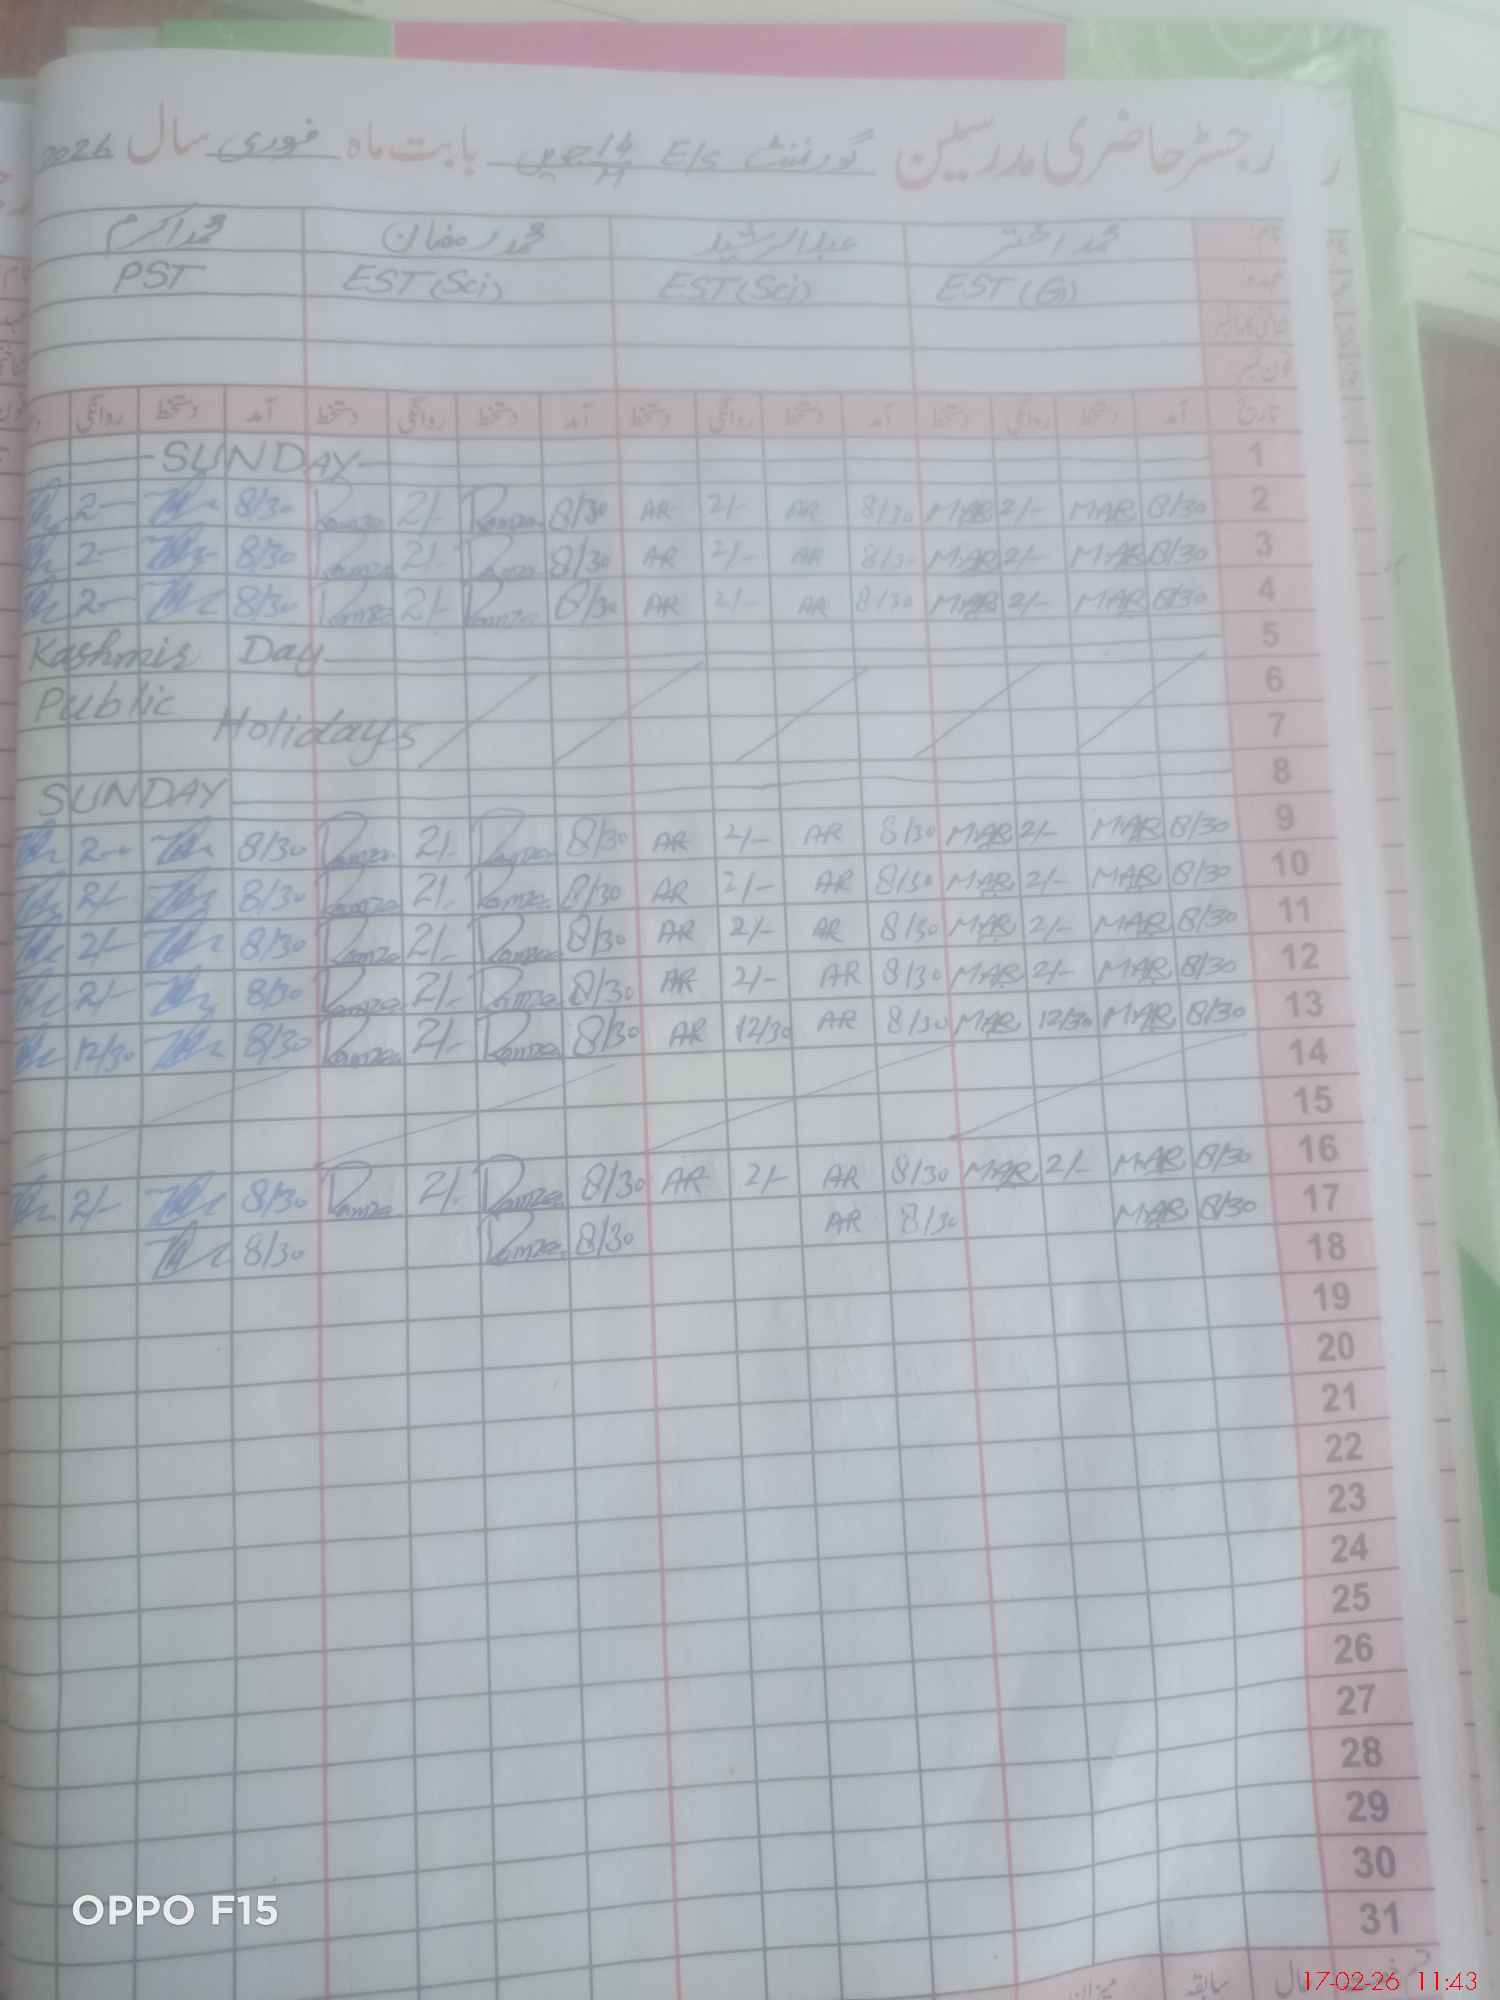 رجسٹر حاضری مدرسین گورنمنٹ E/S بابت ماہ فروری سال 2026
نام محمد اختر عبدالرشید محمد رمضان محمد اکرم
عہدہ EST (G) EST (Sci) EST (Sci) PST
فون نمبر
تاریخ آمد دستخط روانگی دستخط آمد دستخط روانگی دستخط آمد دستخط روانگی دستخط آمد دستخط روانگی
1 SUNDAY
2 8/30 MAR 2/- MAR 8/30 AR 2/- AR 8/30 Ramzan 2/- Ramzan 8/30 2-
3 8/30 MAR 2/- MAR 8/30 AR 2/- AR 8/30 Ramzan 2/- Ramzan 8/30 2-
4 8/30 MAR 2/- MAR 8/30 AR 2/- AR 8/30 Ramzan 2/- Ramzan 8/30 2-
5 Kashmir Day
6 Public
7 Holidays
8 SUNDAY
9 8/30 MAR 2/- MAR 8/30 AR 2/- AR 8/30 Ramzan 2/- Ramzan 8/30 2-
10 8/30 MAR 2/- MAR 8/30 AR 2/- AR 8/30 Ramzan 2/- Ramzan 8/30 2/-
11 8/30 MAR 2/- MAR 8/30 AR 2/- AR 8/30 Ramzan 2/- Ramzan 8/30 2/-
12 8/30 MAR 2/- MAR 8/30 AR 2/- AR 8/30 Ramzan 2/- Ramzan 8/30 2/-
13 8/30 MAR 12/30 MAR 8/30 AR 12/30 AR 8/30 Ramzan 2/- Ramzan 8/30 12/30
14
15
16 8/30 MAR 2/- MAR 8/30 AR 2/- AR 8/30 Ramzan 2/- Ramzan 8/30 2/-
17 8/30 MAR 8/30 AR 8/30 Ramzan 8/30
18
19
20
21
22
23
24
25
26
27
28
29
30
31
سابقہ
OPPO F15
17-02-26 11:43